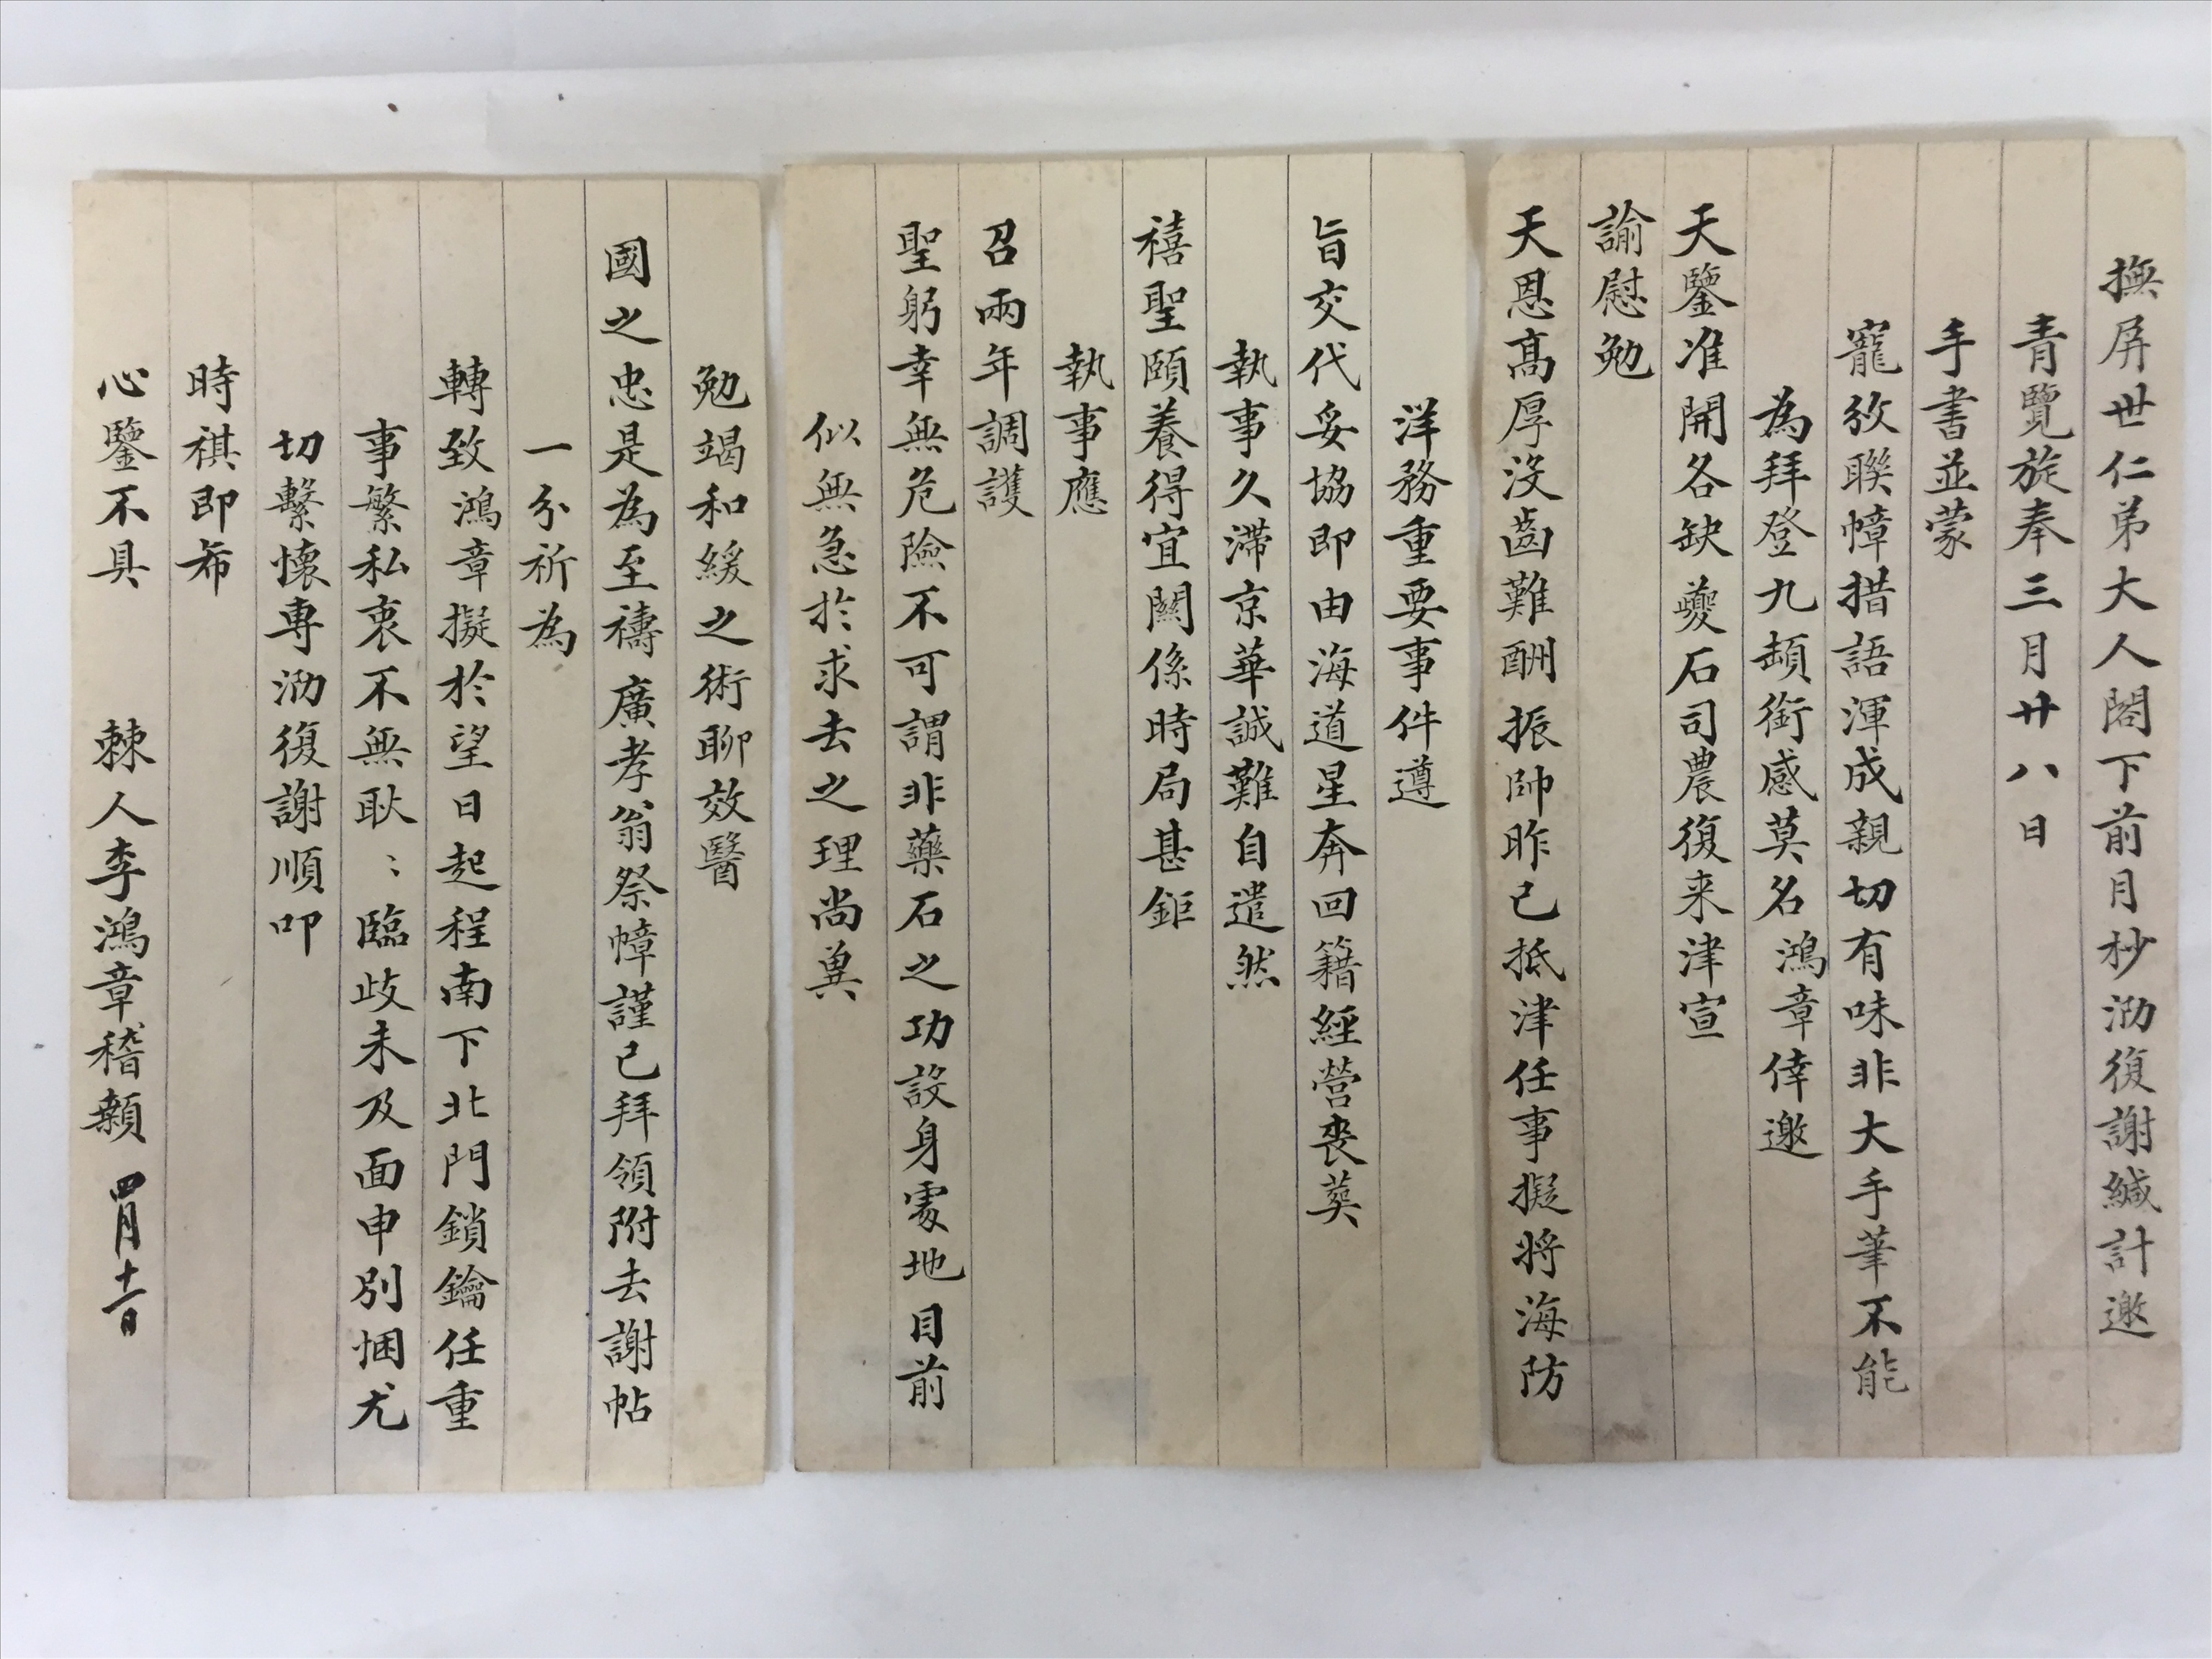 撫屏世仁弟大人閣下前月杪泐復謝緘計邀
青覽旋奉三月廿八日
手書並蒙
寵攽聯幛措語渾成親切有味非大手筆不能
為拜登九頓銜感莫名鴻章倖邀
天鑒准開各缺夔石司農復来津宣
諭慰勉
天恩髙厚没齒難酬振帥昨已抵津任事擬将海防
洋務重要事件遵
旨交代妥協即由海道星奔回籍經營喪葬
執事久滯京華誠難自遣然
禧聖頤養得宜關係時局甚鉅
執事應
召兩年調護
聖躬幸無危險不可謂非藥石之功設身處地目前
似無急於求去之理尚冀
勉竭和緩之術聊效醫
國之忠是為至禱廣孝翁祭幛謹已拜領附去謝帖
一分祈為
轉致鴻章擬於望日起程南下北門鎖鑰任重
事繁私衷不無耿〻臨歧未及面申別悃尤
切繫懷専泐復謝順叩
時祺即希
心鑒不具 棘人李鴻章稽顙 四月十一日